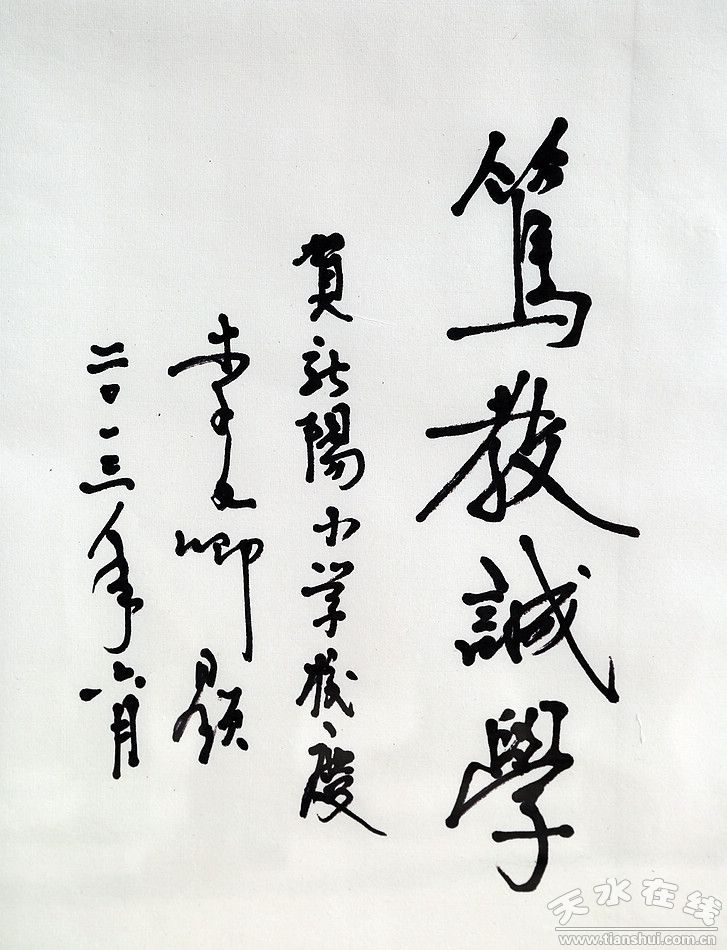 篤教誠學
賀新陽小学校慶
李文卿題
二〇一三年六月
天水在线
www.tianshui.com.cn